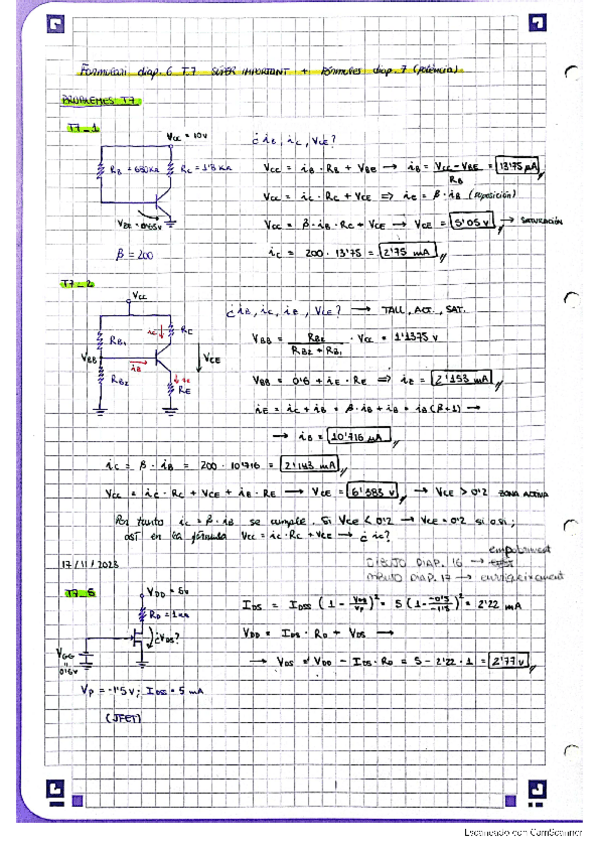 Formulari diap. 6 T.7 SÚPER IMPORTANT + fórmules diap. 7 (potència)
PROBLEMES T7
T7_1
Vcc = 10V
RB = 680KΩ
Rc = 1'8 KΩ
VBE = 0'65V
β = 200
¿ iB, ic, VCE?
Vcc = iB · RB + VBE → iB = Vcc - VBE / RB = 13'75 μA
Vcc = ic · Rc + VCE => ic = β · iB (suposición)
Vcc = β · iB · Rc + VCE → VCE = 5'05 V → SATURACIÓN
ic = 200 · 13'75 = 2'75 mA
T7_2
Vcc
RB1
ic
Rc
VBB
iB
VCE
RB2
iE
RE
¿ iB, ic, iE, VCE? → TALL, ACT., SAT.
VBB = RB2 / RB2 + RB1 · Vcc = 1'1375 V
VBB = 0'6 + iE · RE => iE = 2'153 mA
iE = ic + iB = β · iB + iB = iB (β+1) →
→ iB = 10'716 μA
ic = β · iB = 200 · 10'716 = 2'143 mA
Vcc = ic · Rc + VCE + iB · RE → VCE = 6'383 V → VCE > 0'2 ZONA ACTIVA
Por tanto ic = β · iB se cumple. Si VCE < 0'2 → VCE = 0'2 si o si;
así en la fórmula Vcc = ic · Rc + VCE → ¿ ic?
17/11/2023
empobriment
DIBUJO DIAP. 16 →
DIBUJO DIAP. 17 → enriqueiment
T7_6
VDD = 5V
RD = 1KΩ
¿VDS?
VGG = 0'5V
Vp = -1'5 V; IDSS = 5 mA
(JFET)
IDS = IDSS (1 - VGS/Vp)² = 5 (1 - -0'5/-1'5)² = 2'22 mA
VDD = IDS · RD + VDS →
→ VDS = VDD - IDS · RD = 5 - 2'22 · 1 = 2'77 V
1
Escaneado con CamScanner